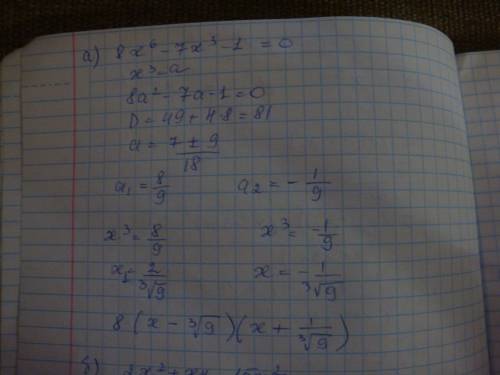 а) 8x⁶ - 7x³ - 1 = 0
x³ = a
8a² - 7a - 1 = 0
D = 49 + 4·8 = 81
a = (7 ± 9)/18
a₁ = 8/9 a₂ = -1/9
x³ = 8/9 x³ = -1/9
x₁ = 2/∛9 x = -1/∛9
8(x - ∛9)(x + 1/∛9)